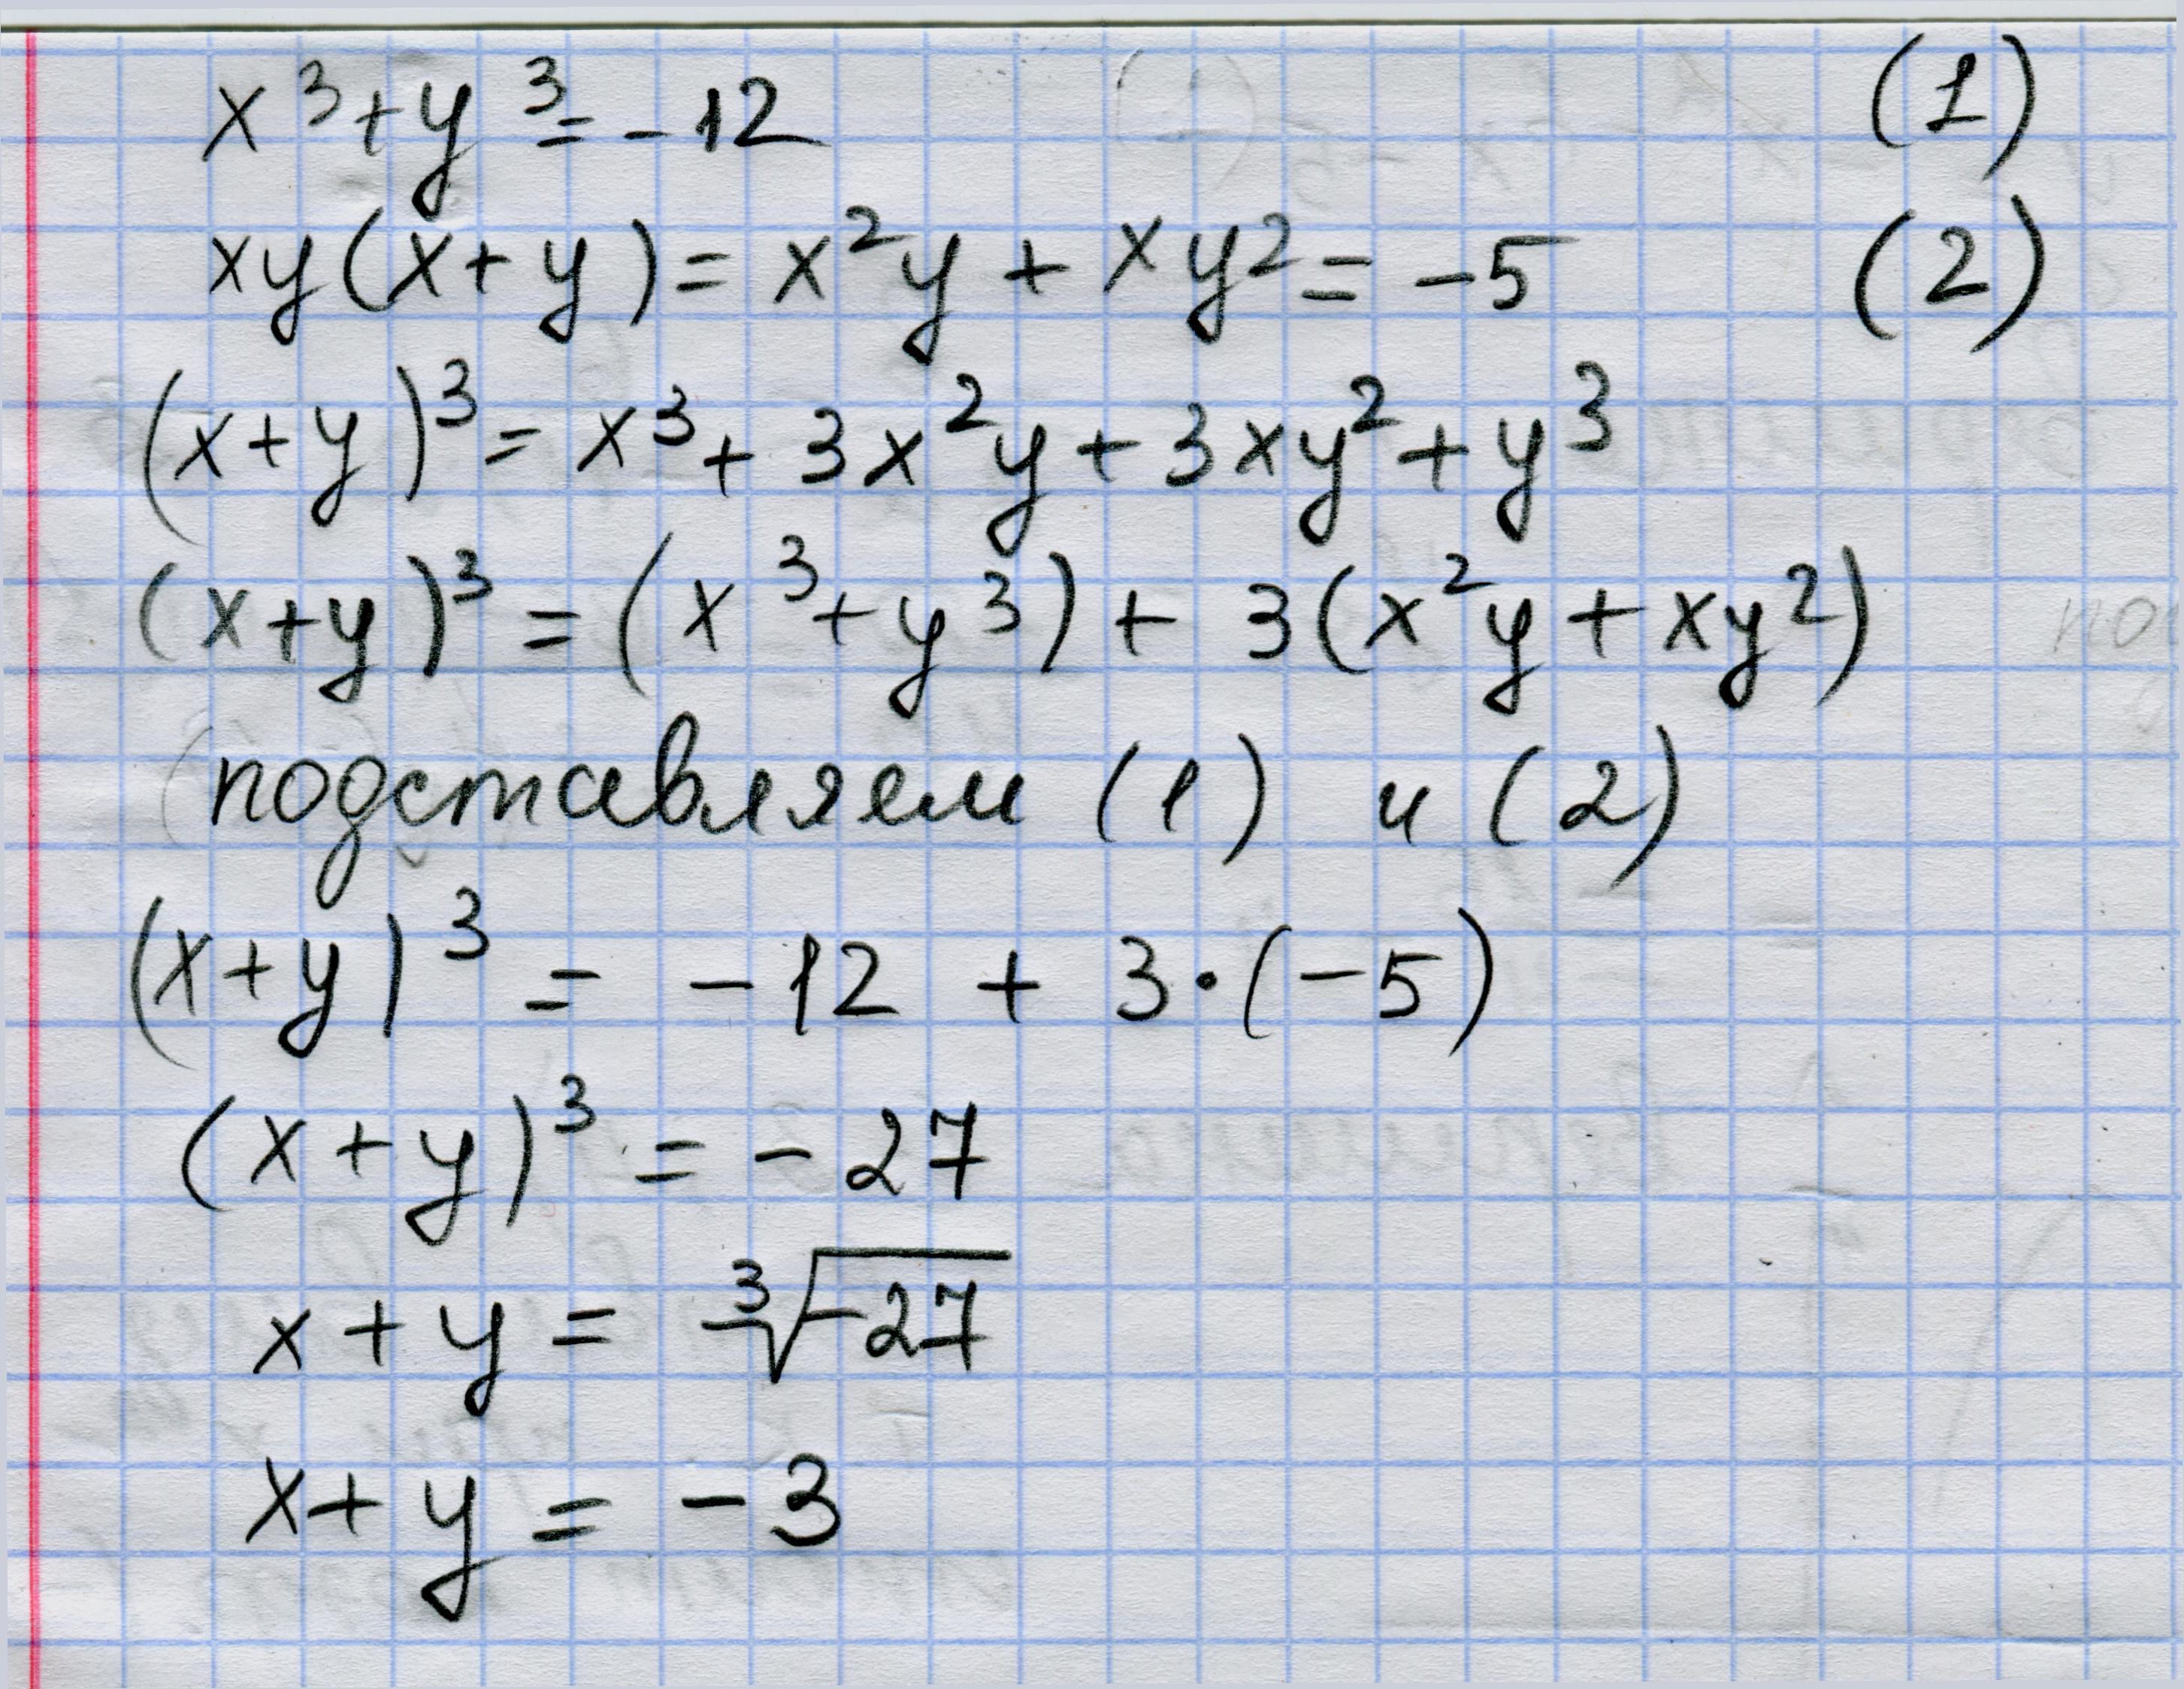 x³+y³=-12 (1)
xy(x+y)=x²y+xy²=-5 (2)
(x+y)³=x³+3x²y+3xy²+y³
(x+y)³=(x³+y³)+3(x²y+xy²)
подставляем (1) и (2)
(x+y)³=-12+3·(-5)
(x+y)³=-27
x+y=∛-27
x+y=-3